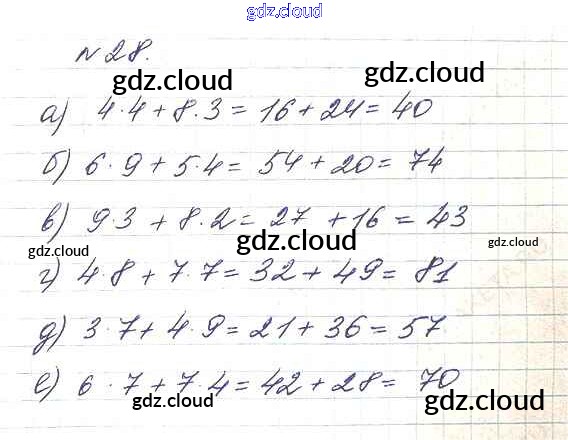 gdz.cloud
№28.
gdz.cloud
gdz.cloud
а) 4·4+8·3=16+24=40
gdz.cloud
б) 6·9+5·4=54+20=74
в) 9·3+8·2=27+16=43
gdz.cloud
gdz.cloud
gdz.cloud
г) 4·8+7·7=32+49=81
д) 3·7+4·9=21+36=57
е) 6·7+7·4=42+28=70
gdz.cloud
gdz.cloud